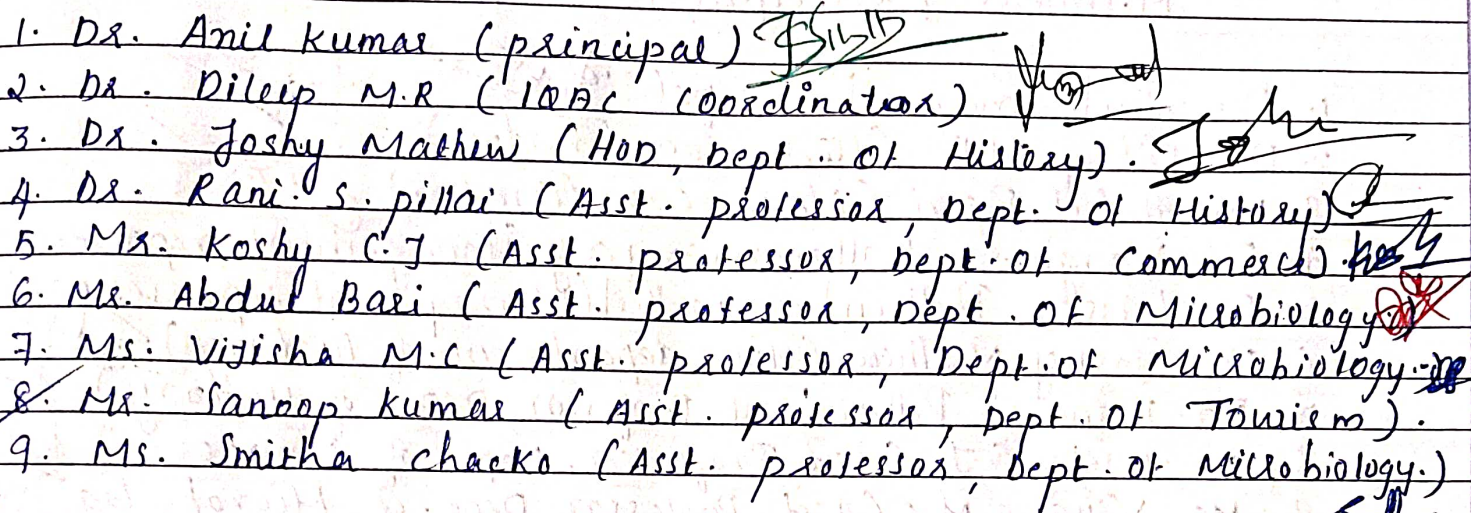 1. Dr. Anil Kumar (principal)
2. Dr. Dileep M.R (IQAC Coordinator)
3. Dr. Joshy Mathew (HOD, Dept. of History).
4. Dr. Rani. S. pillai (Asst. professor, Dept. of History)
5. Mr. Koshy C.J (Asst. professor, Dept. of Commerce).
6. Mr. Abdul Bari (Asst. professor, Dept. of Microbiology.)
7. Ms. Vijisha M.C (Asst. professor, Dept. of Microbiology.
8. Mr. Sanoop Kumar (Asst. professor, Dept. of Tourism).
9. Ms. Smitha chacko (Asst. professor, Dept. of Microbiology.)